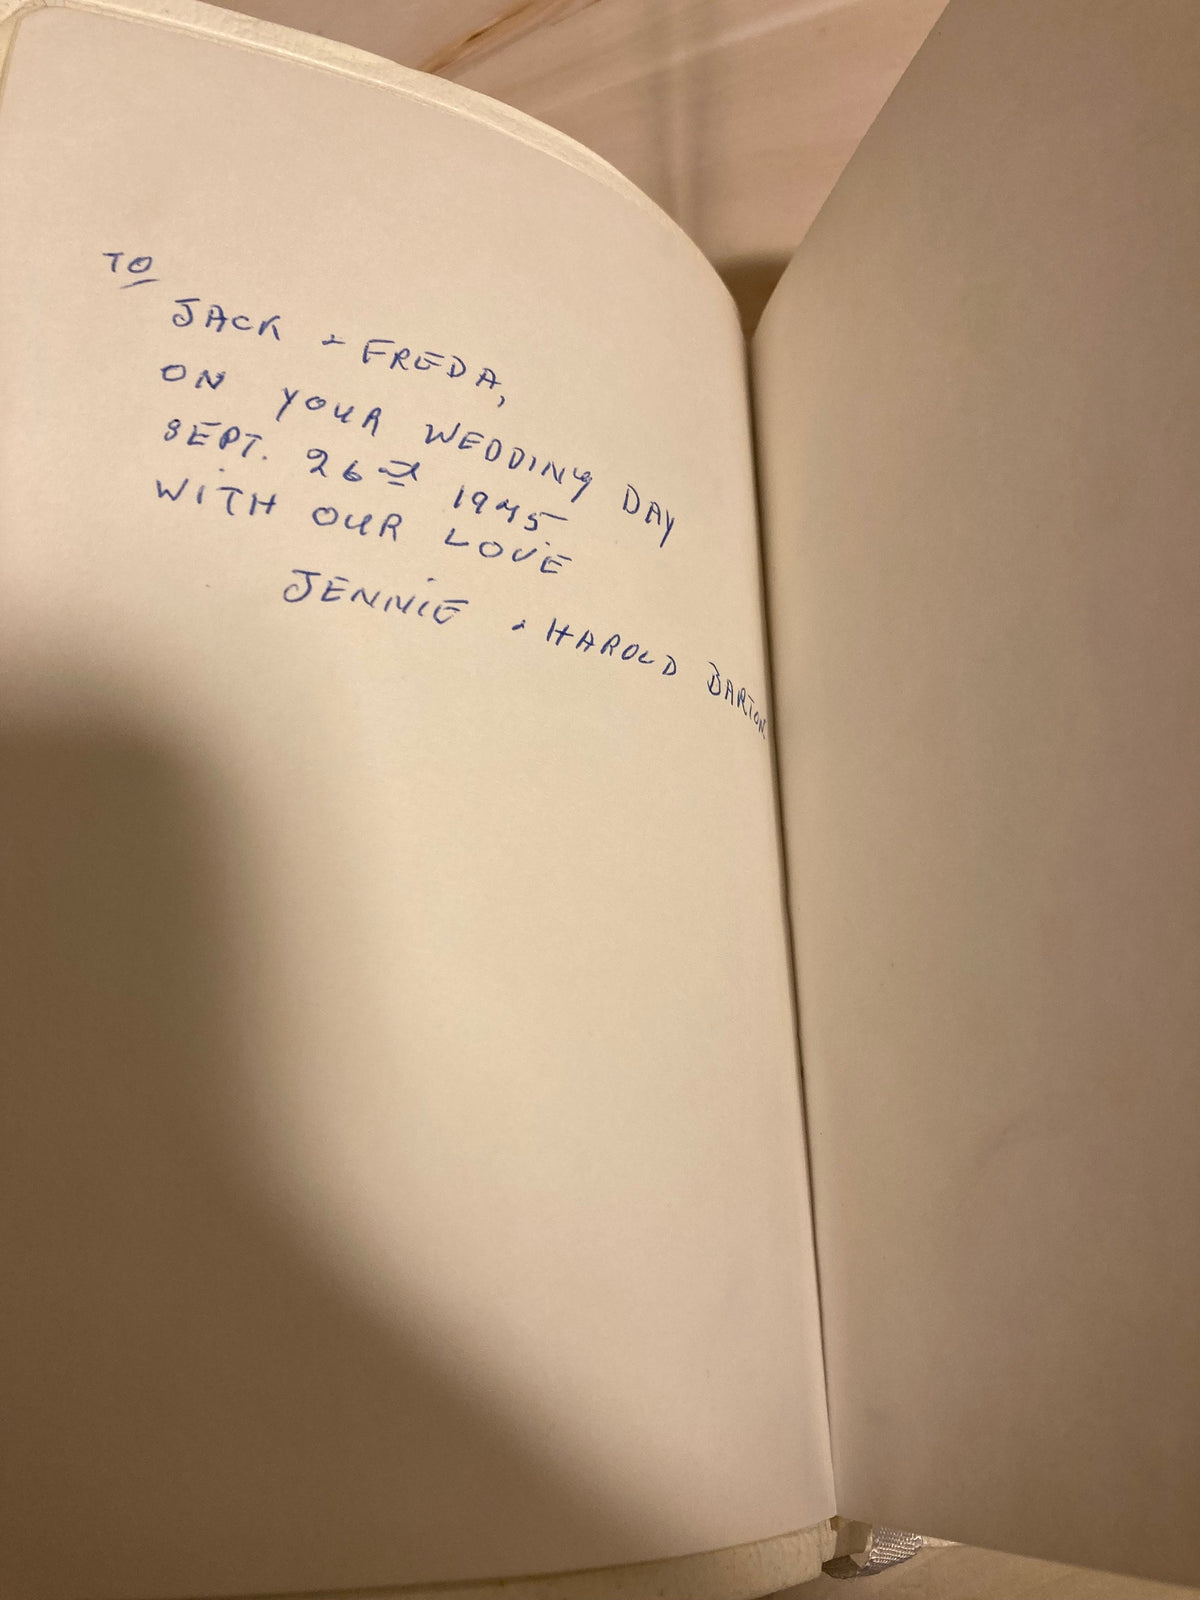 TO
JACK + FREDA,
ON YOUR WEDDING DAY
SEPT. 26th 1945
WITH OUR LOVE
JENNIE + HAROLD BARTON